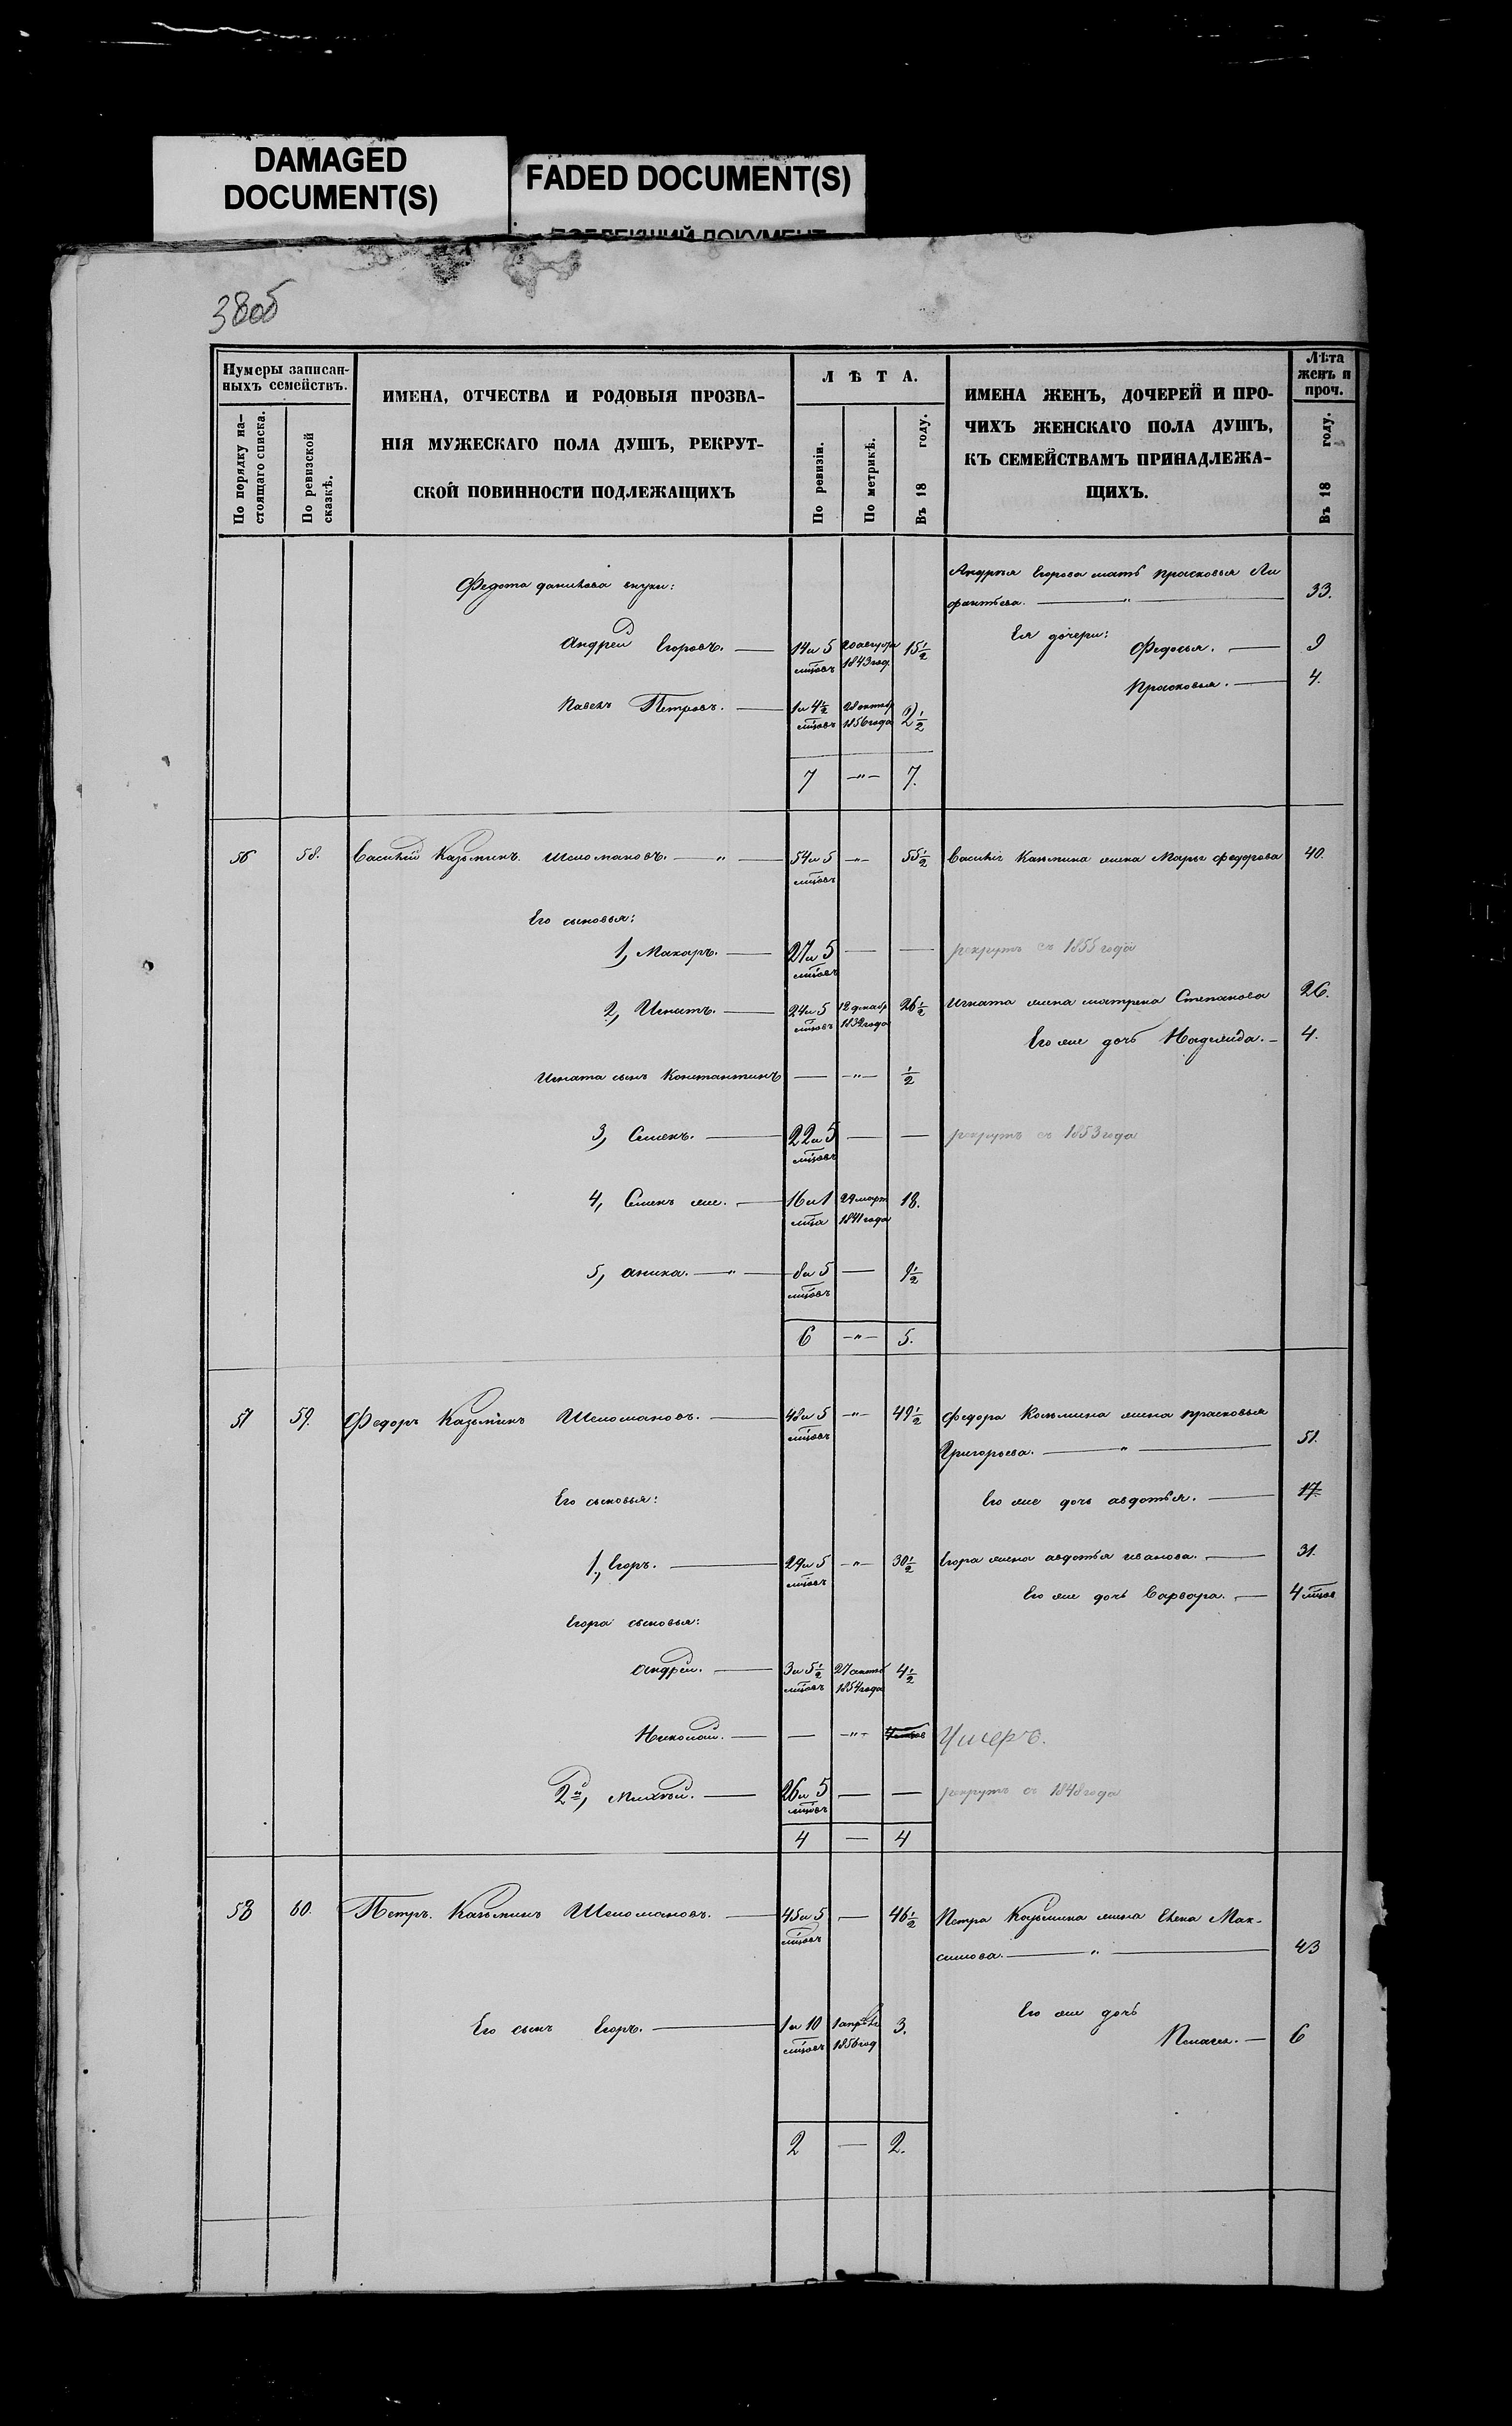 DAMAGED
DOCUMENT(S)
FADED DOCUMENT(S)
38об
Нумеры записан-
ныхъ семействъ.
По порядку на-
стоящаго списка.
По ревизской
сказкѣ.
ИМЕНА, ОТЧЕСТВА И РОДОВЫЯ ПРОЗВА-
НІЯ МУЖЕСКАГО ПОЛА ДУШЪ, РЕКРУТ-
СКОЙ ПОВИННОСТИ ПОДЛЕЖАЩИХЪ
ЛѢТА.
По ревизіи.
По метрикѣ.
Въ 18 году.
ИМЕНА ЖЕНЪ, ДОЧЕРЕЙ И ПРО-
ЧИХЪ ЖЕНСКАГО ПОЛА ДУШЪ,
КЪ СЕМЕЙСТВАМЪ ПРИНАДЛЕЖА-
ЩИХЪ.
Лѣта
женъ и
проч.
Въ 18 году.
Федота данилова внуки:
Андрея Егорова мать прасковья
33.
Андрей Егоровъ. 14 и 5 мцовъ 1843 год. 15 1/2
Ея дочери: Федосья. 9
Прасковья. 4.
Павелъ Петровъ. 1 и 4 1/2 мцовъ 28 октяб 1856 года 2 1/2
7 — " — 7.
56 58. Василій Казьминъ Шеломановъ. — " — 54 и 5 мцовъ — " — 55 1/2 Василія Казьмина жена Марья федорова 40.
Его сыновья:
1, Макаръ. 27 и 5 мцовъ — — рекрутъ съ 1855 года
2, Игнатъ. 24 и 5 мцовъ 12 декабр 1832 года 26 1/2 Игната жена матрена Степанова 26.
Его же дочь Надежида. 4.
Игната сынъ Константинъ — — " — 1/2
3, Семенъ. 22 и 5 мцовъ — — рекрутъ съ 1853 года
4, Семенъ же. 16 и 1 мца 1841 года 18.
5, аника. — " — 8 и 5 мцовъ — 9 1/2
6 — " — 5.
57 59. Федоръ Казьминъ Шеломановъ. 48 и 5 мцовъ — " — 49 1/2 федора Козьмина жена прасковья
Григорьева. — " — 51.
Его сыновья:
Его же дочь авдотья. 17
1., Егоръ. 29 и 5 мцовъ — " — 30 1/2 Егора жена авдотья иванова. 31.
Его же дочь Варвара. 4 мцов
Егора сыновья:
андрей. 3 и 5 1/2 мцовъ 1854 года 4 1/2
Николай. — — " — Умеръ.
2й, Михѣй. 26 и 5 мцовъ — — рекрутъ съ 1848 года
4 — 4
58 60. Петръ. Казьминъ Шеломановъ. 45 и 5 мцовъ — 46 1/2 Петра Козьмина жена Елена Мак-
симова. — " — 43
Его сынъ Егоръ. 1 и 10 мцовъ 1 апрѣля 1856 год 3.
Его же дочь
Пелагея. 6
2 — 2.